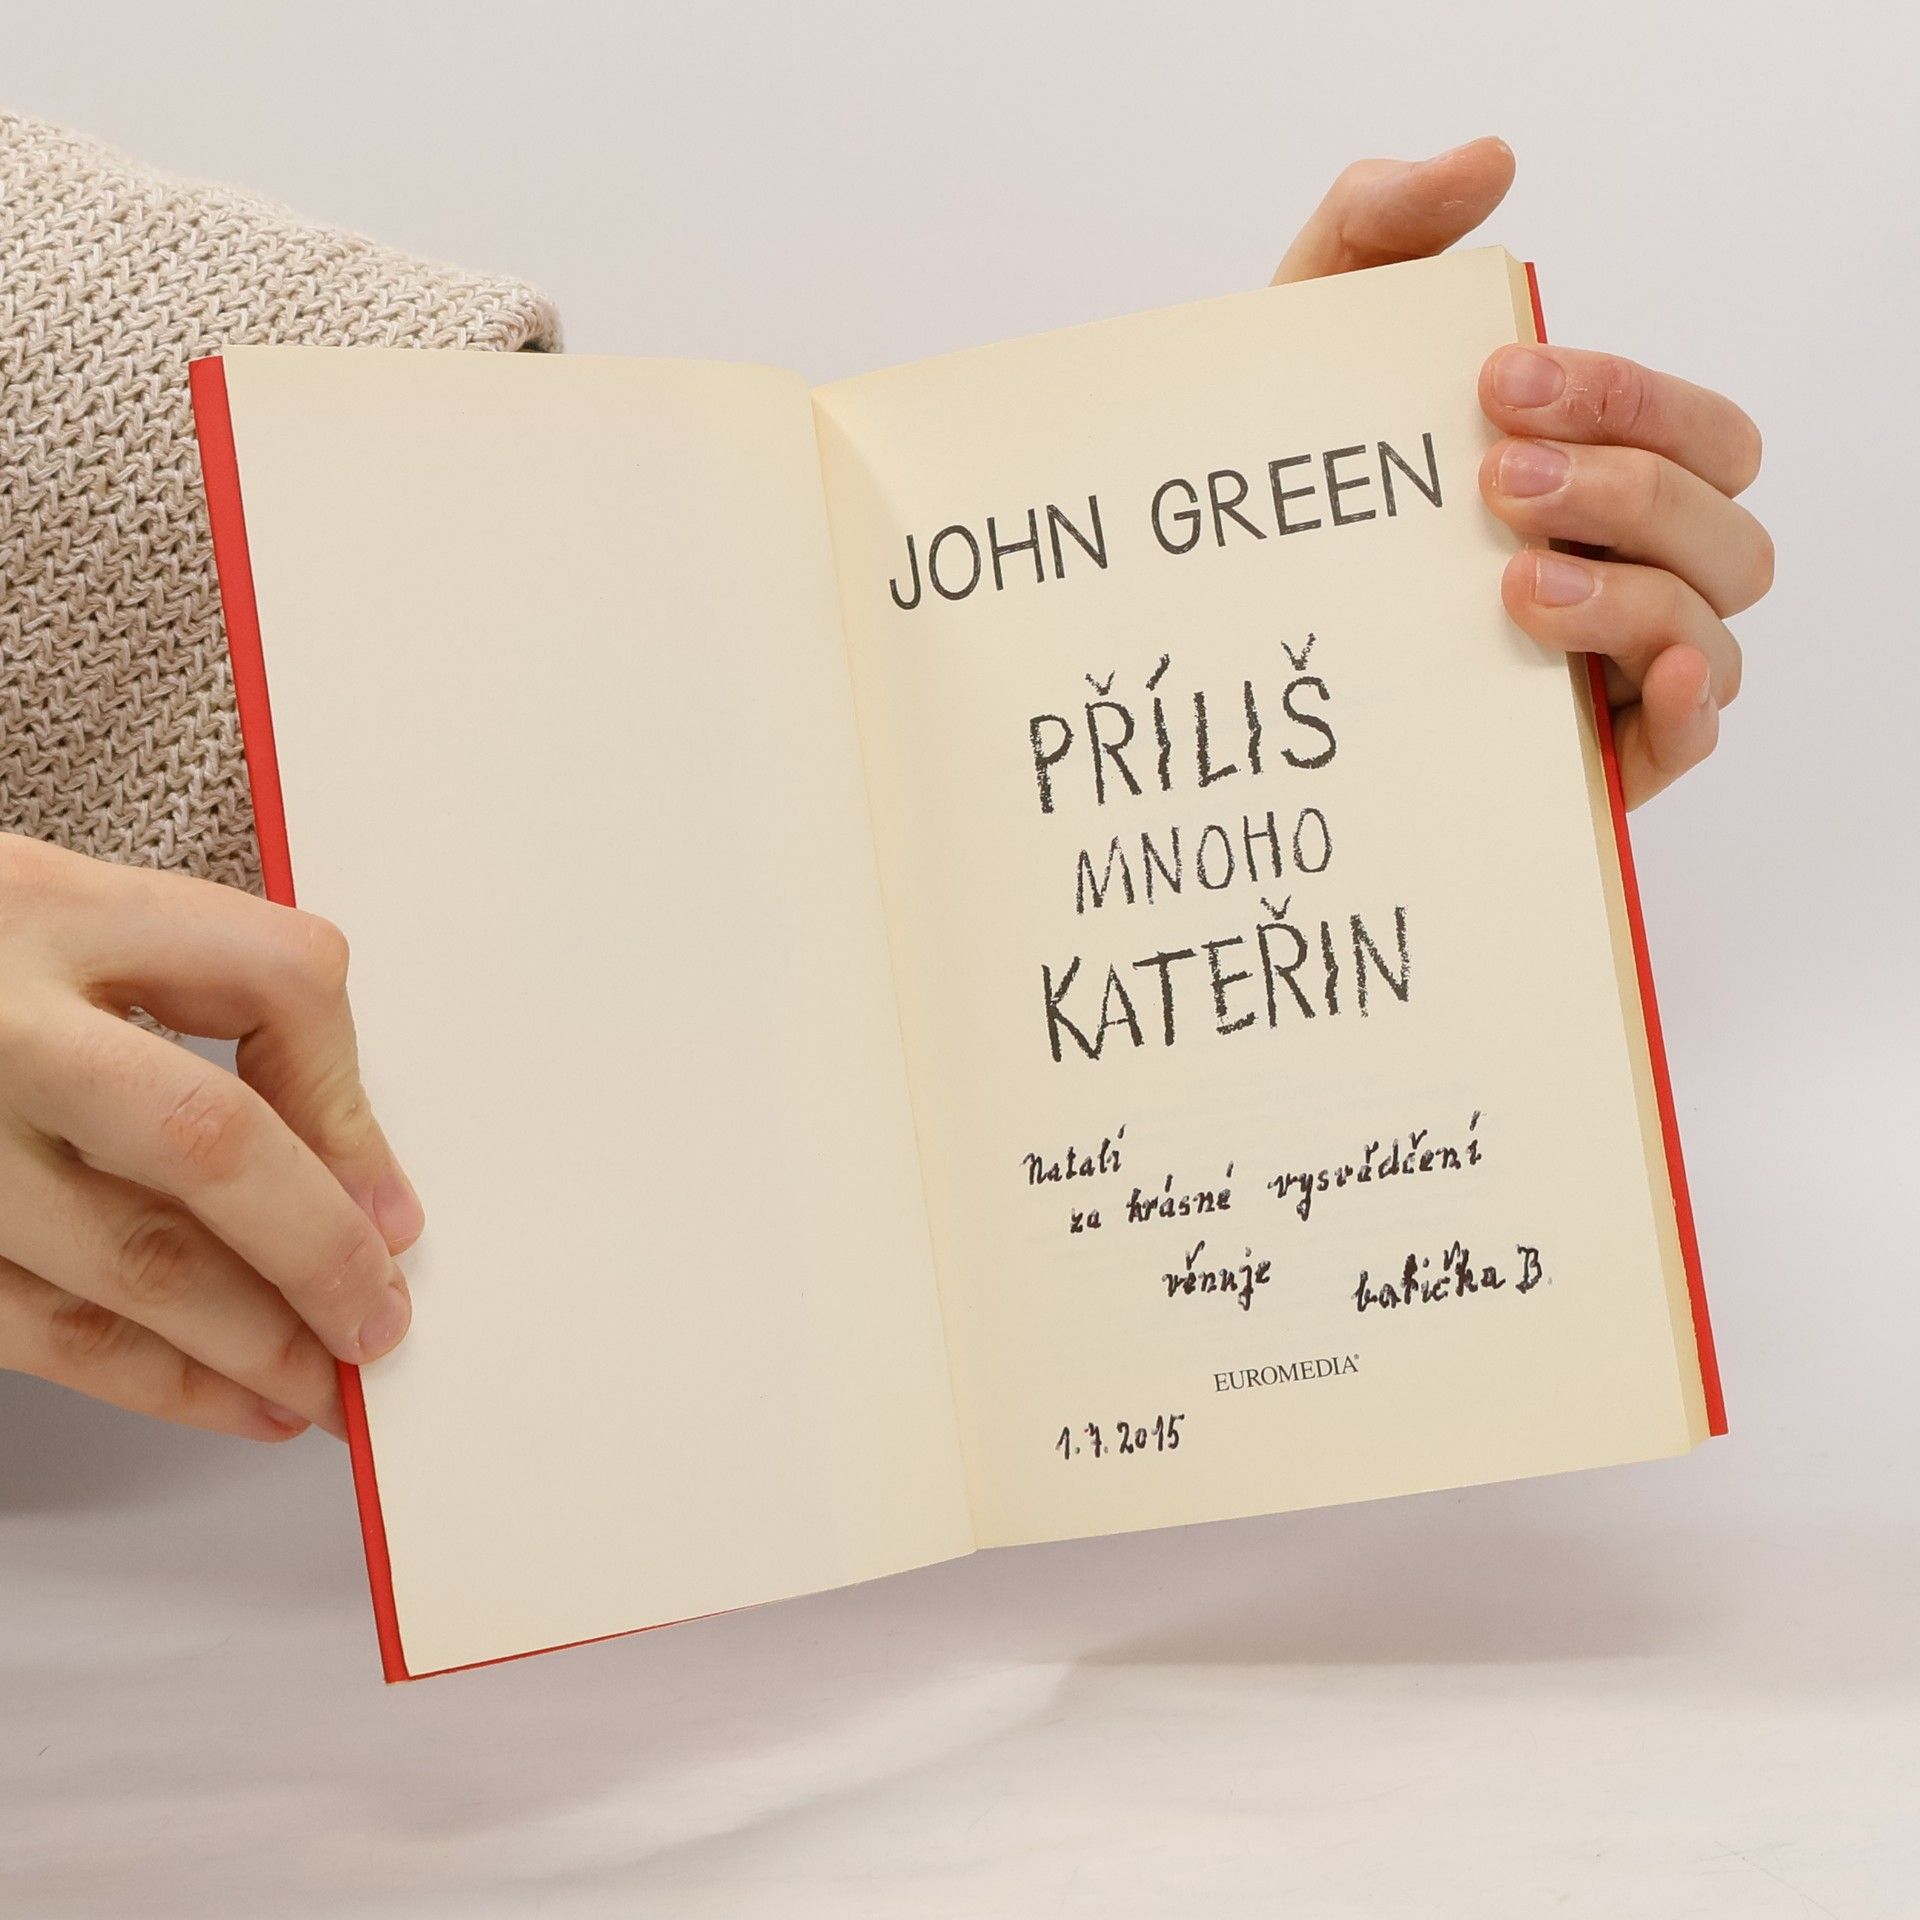 JOHN GREEN
PŘÍLIŠ
MNOHO
KATEŘIN
Natalí
za krásné vysvědčení
věnuje babička B.
EUROMEDIA®
1.7.2015